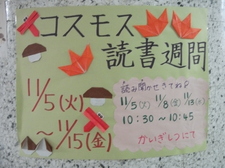 コスモス
読書週間
11/5(火)
～11/15(金)
読み聞かせもするよ
11/5(火) 11/8(金) 11/13(水)
10:30～10:45
かいぎしつにて